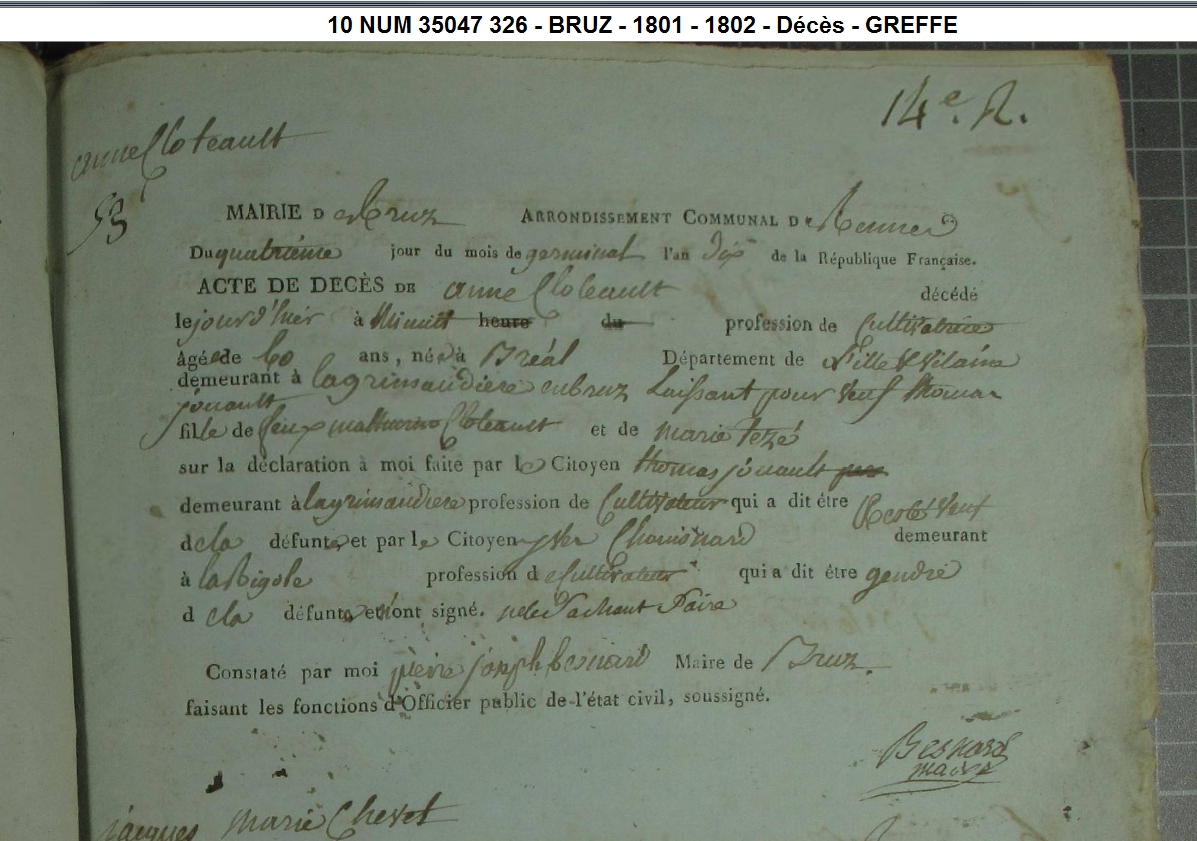 10 NUM 35047 326 - BRUZ - 1801 - 1802 - Décès - GREFFE
14e. R.
anne Cloteault
53
MAIRIE D e Bruz ARRONDISSEMENT COMMUNAL DE Rennes
Du quatrième jour du mois de germinal l'an dix de la République Française.
ACTE DE DECÈS DE anne Cloteault décédé
le jour d'hier à Minuit heure du profession de Cultivatrice
âgée de 60 ans, née à Bréal Département de d'ille & vilaine
demeurant à la grimaudiere en bruz Laissant pour veuf thomas
jouault
fille de feu mathurin Cloteault et de marie tezé
sur la déclaration à moi faite par le Citoyen thomas jouault
demeurant à la grimaudiere profession de Cultivateur qui a dit être veuf
de la défunte et par le Citoyen demeurant
à la Bigote profession de Cultivateur qui a dit être gendre
de la défunte et n'ont signé. ne le Sachant Faire
Constaté par moi pierre joseph besnard Maire de Bruz.
faisant les fonctions d'Officier public de l'état civil, soussigné.
Besnard
maire
jacques marie Chevet